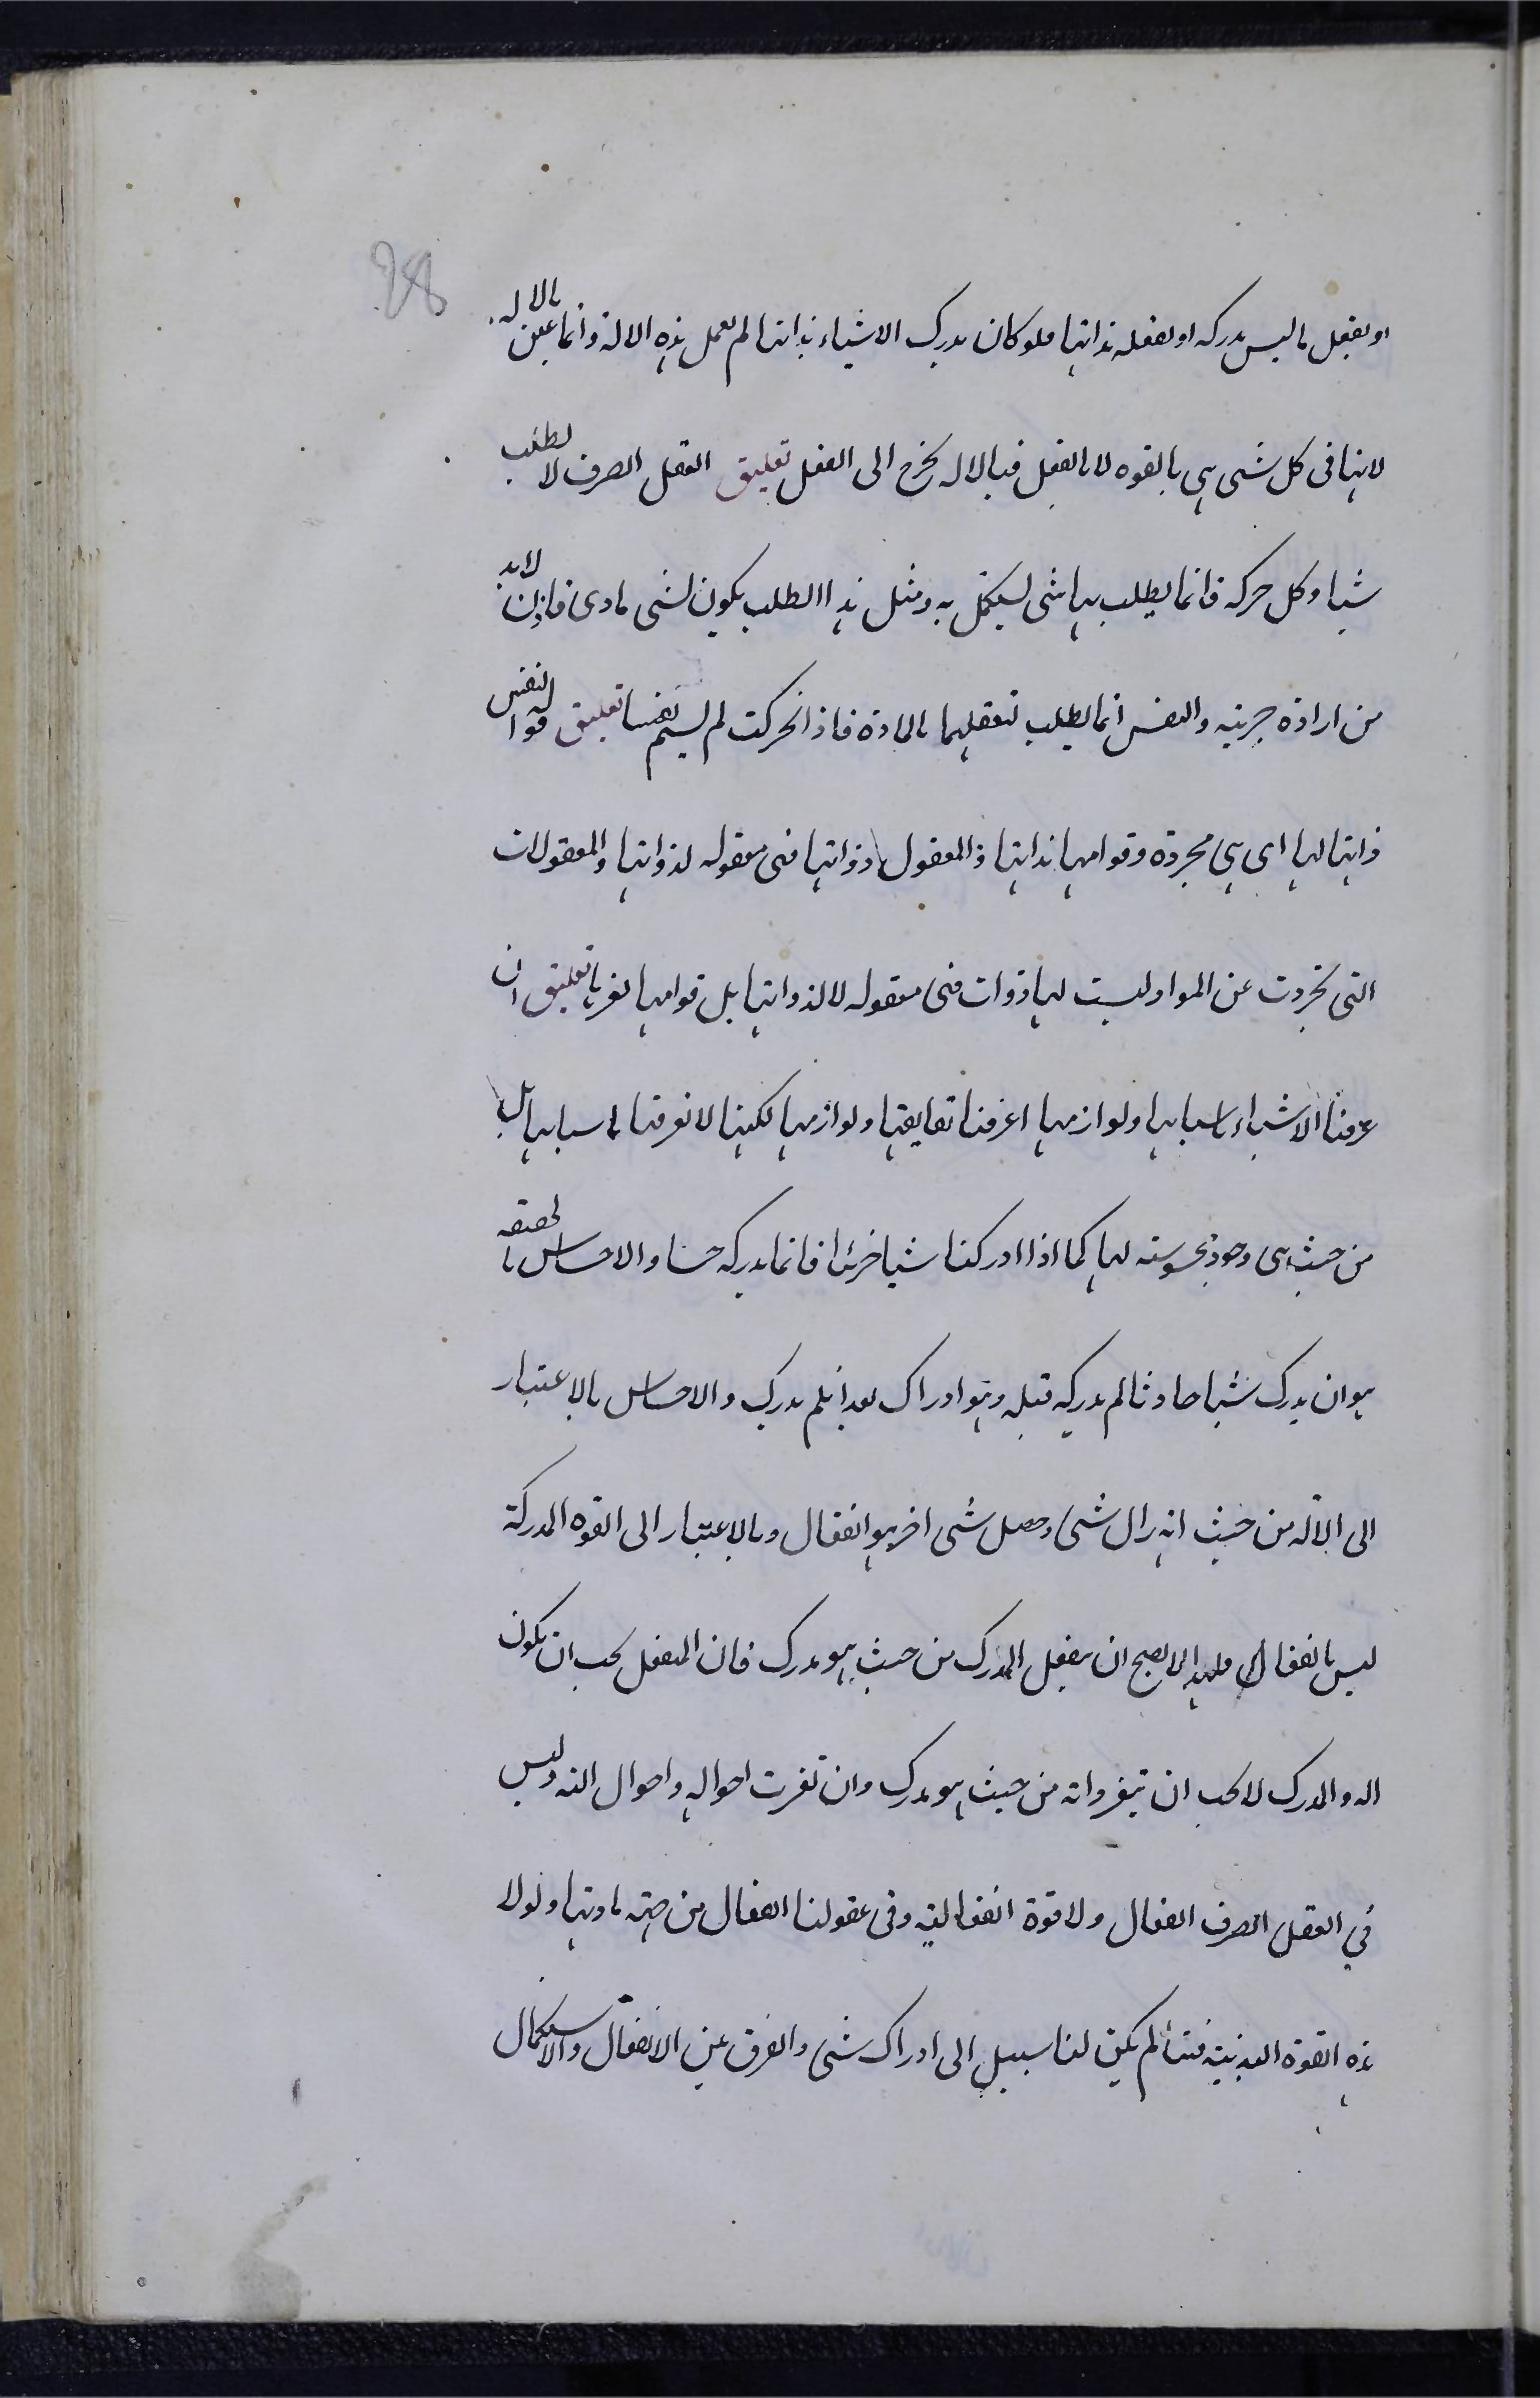 28
او يفعل ماليس يدركه او يعقله بذاتها فلو كان يدرك الاشياء بذاتها لم تعمل هذه الالة وانما عين بالاله
لانها فى كل شى هى بالقوه لا بالفعل فبالاله يخرج الى الفعل تعليق العقل الصرف لا يطلب
شيا وكل حركه فانما يطلب بها شى ليستكمل به ومثل هذا الطلب يكون لشى مادى فاذن لابد
من ارادة جزيته والنفس انما يطلب تعقلهما بالمادة فاذا تحركت لم يسم نفسا تعليق قوا النفس
ذاتها لها اى هى مجردة وقوامها بذاتها والمعقول ذواتها فهى معقوله لذواتها والمعقولات
التى تجردت عن المواد ليست لها ذوات فهى معقوله لا لذواتها بل قوامها بغيرها تعليق ان
عرفنا الاشياء باسبابها ولوازمها اعرفنا حقايقها ولوازمها لكنها لا نعرفها باسبابها بل
من حيث هى وجود محسوسه لها كما اذا ادركنا شيا جزئيا فانما ندركه حسا والاحساس بالحقيقه
هو ان يدرك شيا حادثا لم يدركه قبله وهو ادراك بعد ان لم يدرك والاحساس بالاعتبار
الى الاله من حيث انه زال شى وحصل شى اخر هو انفعال وبالاعتبار الى القوه المدركة
ليس بانفعال فلهذا لا يصح ان ينفعل المدرك من حيث هو مدرك فان المنفعل يجب ان يكون
اله والمدرك لا يجب ان يتغير ذاته من حيث هو مدرك وان تغيرت احواله واحوال الته وليس
في العقل الصرف انفعال ولا قوة انفعاليه وفى عقولنا انفعال من جهة مادتها ولولا
هذه القوة البدنية فينا لم يكن لنا سبيل الى ادراك شى والفرق بين الانفعال والاستكمال